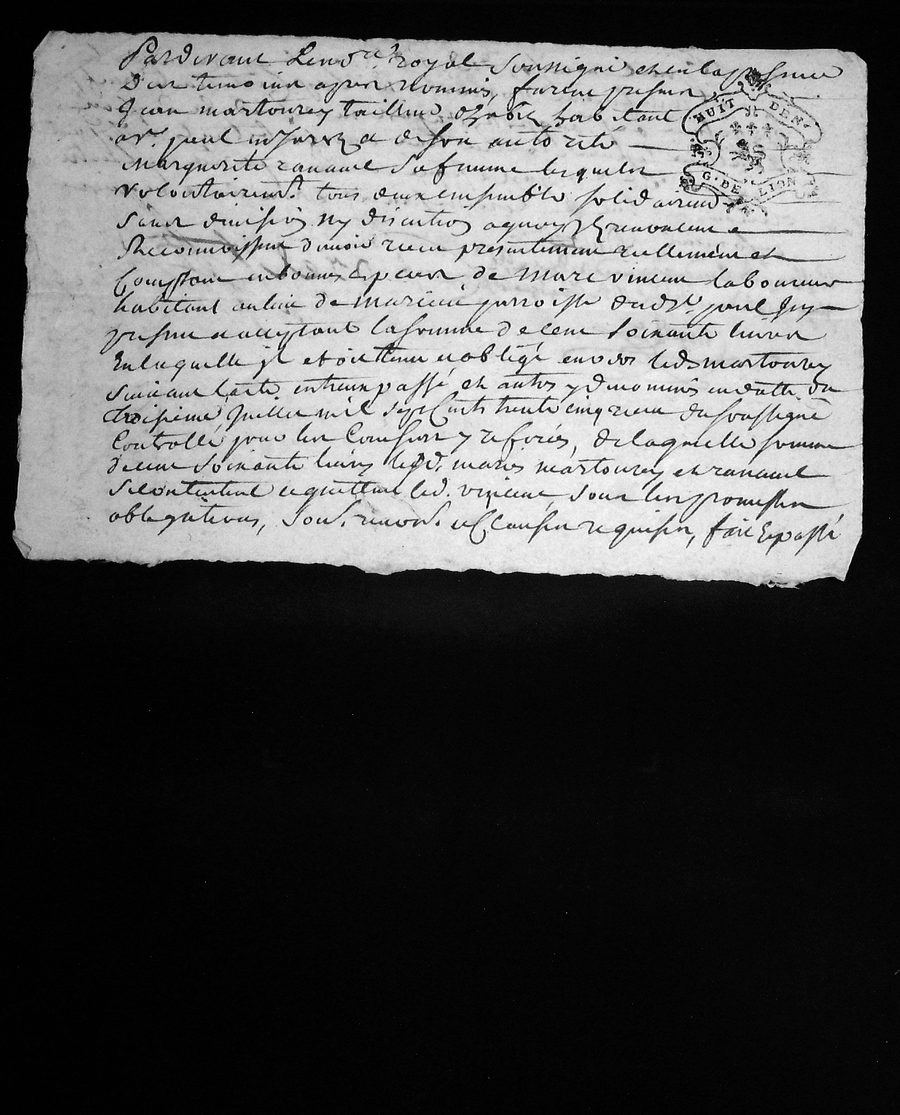 Pardevant Le no.re royal soussigné et en la presence
Des temoins apres nommés, furent presens
Jean martourey tailleur d'habit habitant
a S.t paul in Jarrez et de son autorité
Marguerite ranaud sa femme lesquels
volontairem.t tous deux ensemble solidairem.t
sans division ny discution a quoy ils renoncent
Reconnoissent d'avoir receu presentement reellement et
Comptant en bonnes especes de Marc vincent laboureur
habitant au lieu de parroisse dud. S.t paul Icy
present acceptant la somme de cent soixante livres
En laquelle il etoit tenu et obligé envers lesd. martourey
suivant l'acte entreux passé et autres y denommés en datte du
troisieme Juillet mil sept Cents trente cinq receu du soussigné
Controllé pour les Causes y referées, de laquelle somme
de cent soixante livres lesd. mariés martourey et ranaud
se contentent et quittent led. vincent sous les promesses
obligations, Soub. renon. et Clauses requises, fait et passé
HUIT DEN.rs
G. DE LION